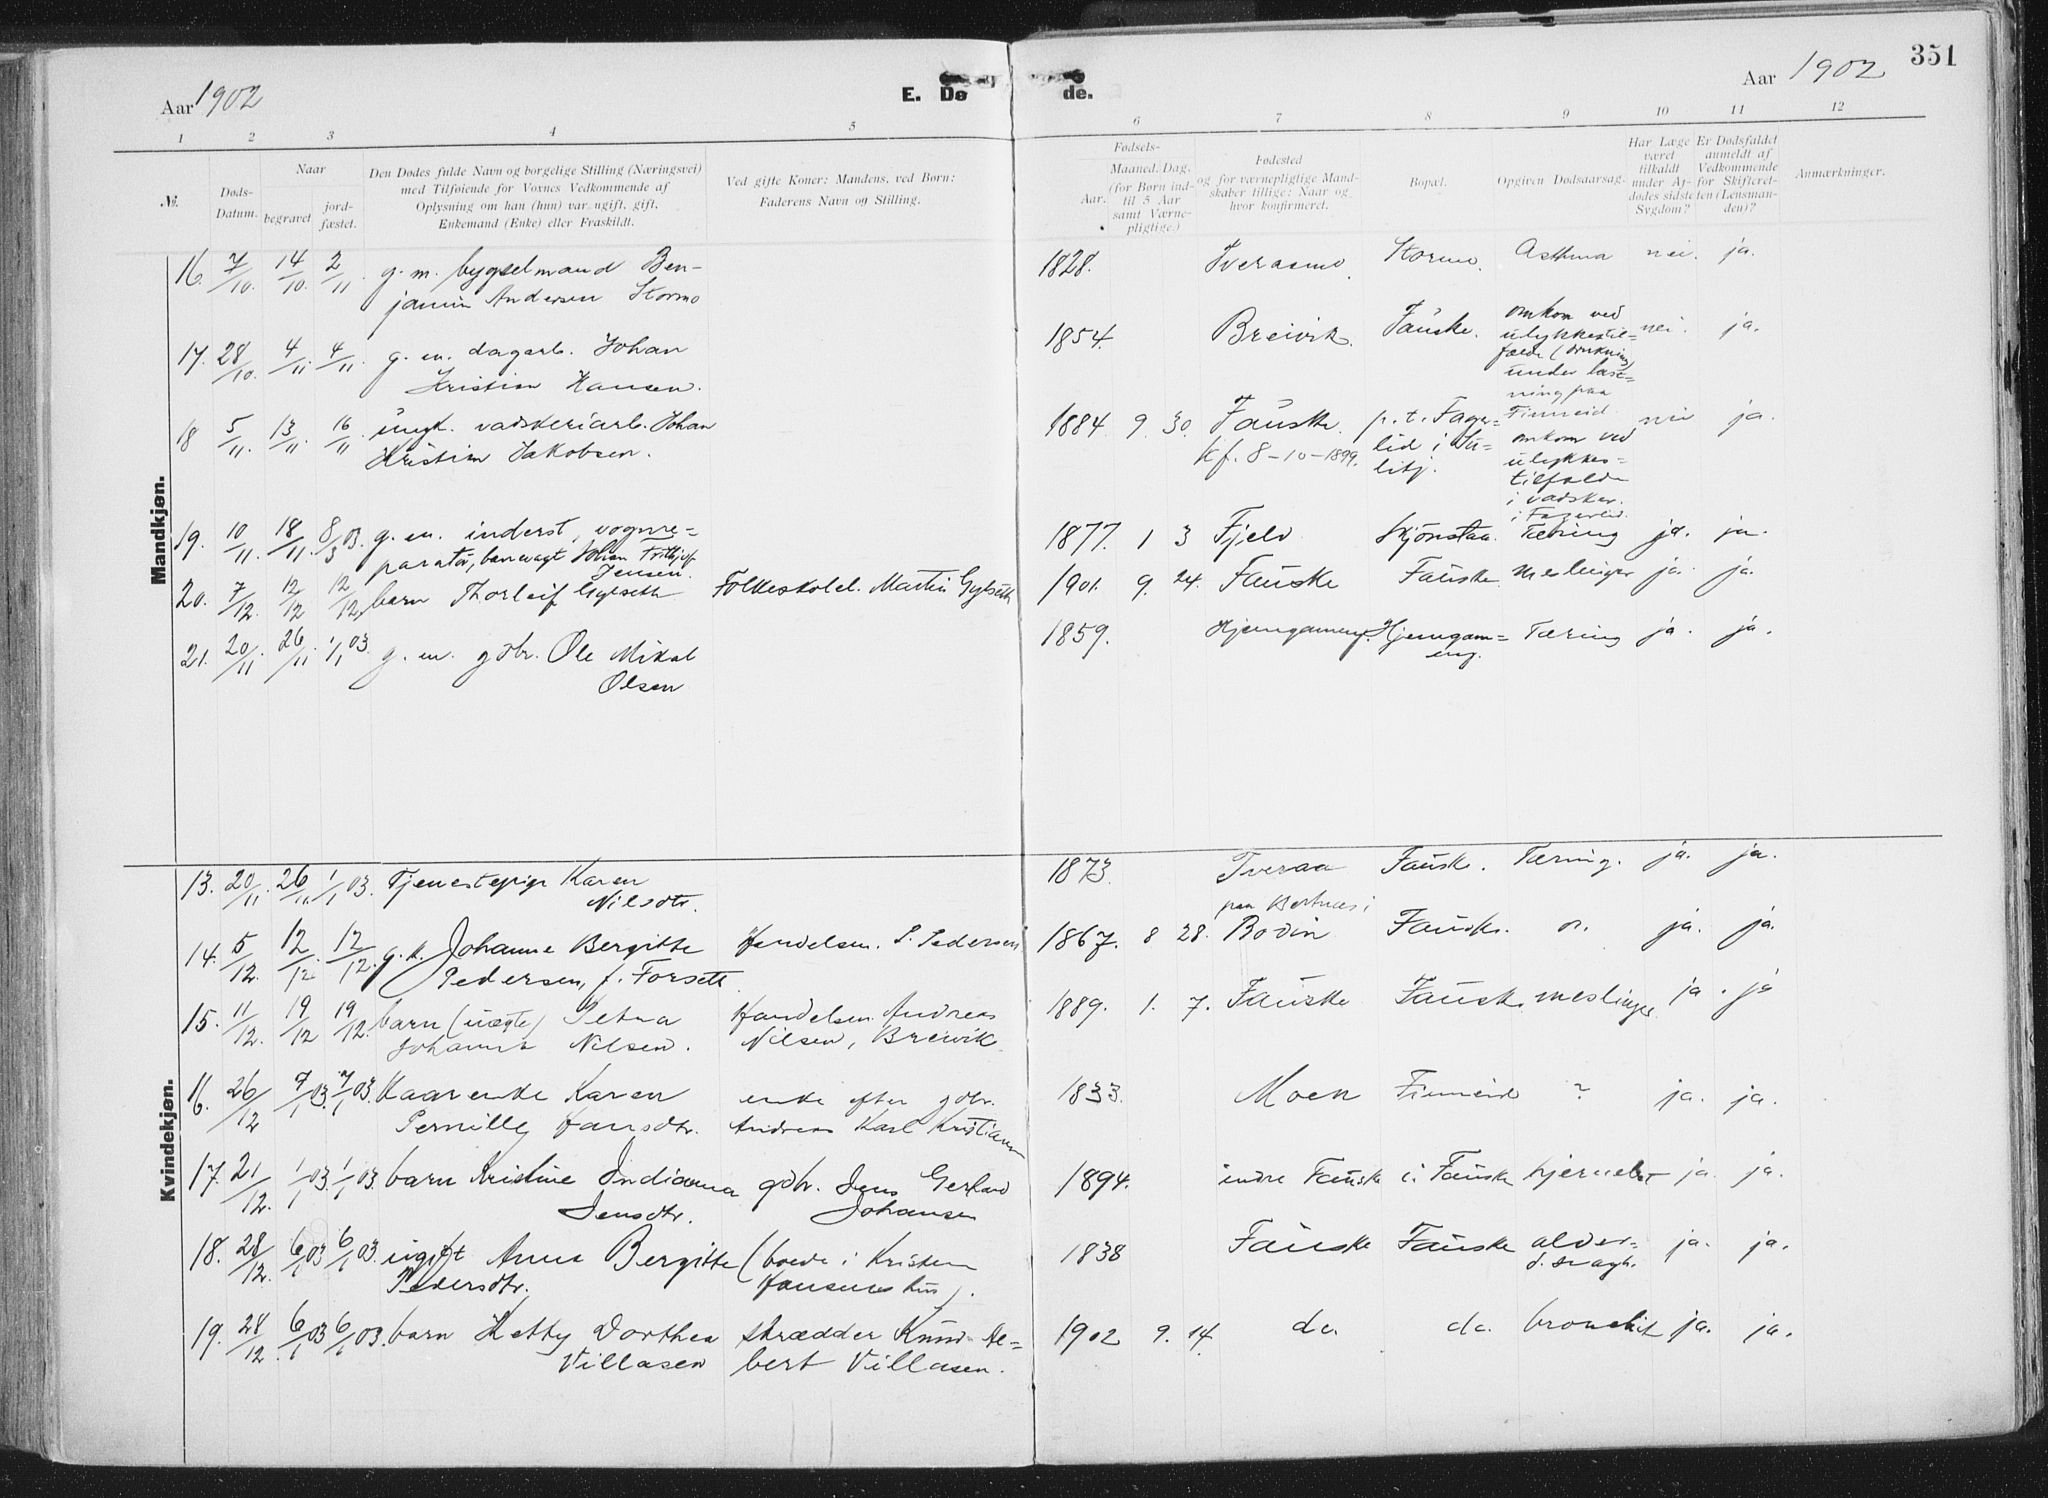 Aar 1902
E. Dø
de.
Aar 1902
351
1 2 3 4 5 6 7 8 9 10 11 12
№.
Døds-
Datum.
Naar
begravet
jord-
fæstet.
Den Dødes fulde Navn og borgelige Stilling (Næringsvei)
med Tilføiende for Voxnes Vedkommende af
Oplysning om han (hun) var ugift, gift,
Enkemand (Enke) eller Fraskildt.
Ved gifte Koner: Mandens, ved Børn:
Faderens Navn og Stilling.
Fødsels-
Aar.
Maaned. Dag.
(for Børn ind-
til 5 Aar
samt Værne-
pligtige.)
Fødested
og for værnepligtige Mand-
skaber tillige: Naar og
hvor konfirmeret.
Bopæl.
Opgiven Dødsaarsag.
Har Læge
været
tilkaldt
under Af-
dødes sidste
Sygdom?
Er Dødsfaldet
anmeldt af
Vedkommende
for Skifteret-
ten (Lensman-
den)?
Anmærkninger.
Mandkjøn.
16. 7/10. 14/10. 2/11. g. m. bygselmand Ben-
jamin Andersen Stormo
1828. Tveraamo. Stormo. Asthma nei. ja.
17. 28/10. 4/11. 4/11. g. m. dagarb. Johan
Kristian Hansen.
1854. Breivik. Fauske. omkom ved
ulykkestil-
fælde (drukning)
under last-
ning paa
Finneid.
nei. ja.
18 5/11. 13/11. 16/11. ungk. vadskeriarb. Johan
Kristian Jakobsen.
1884 9. 30. Fauske.
kf. 8-10-1899.
p. t. Fager-
lid i Su-
litj.
omkom ved
ulykkes-
tilfælde
i vadsker.
i Fagerlid.
nei ja.
19. 10/11. 18/11. 8/3 03. g. m. inderst, vognre-
paratør, banevagt Johan Fritthjof
Jensen.
1877. 1 3 Fjeld Skjønstaa. Tæring ja. ja.
20. 7/12. 12/12 12/12, barn Thorleif Gylseth Folkeskolel. Martin Gylseth
1901. 9. 24. Fauske Fauske. meslinger ja. ja.
21. 20/11. 26/11. 1/1 03. g. m. gdbr. Ole Mikal
Olsen
1859. Hjemgameng. Hjemgam-
eng.
Tæring ja. ja.
Kvindekjøn.
13. 20/11. 26/11 1/1 03. Tjenestepige Karen
Nilsdtr.
1873. Tveraa Fausk. Tæring. ja. ja.
14. 5/12. 12/12. 12/12. g. k. Johanne Bergitte
Pedersen, f. Forseth
Handelsm. P. Pedersen
1867. 8 28. paa Bertnes i
Bodin Fauske. ja. ja.
15. 11/12. 19/12 19/12. barn (uægte) Petra
Johanna Nilsen.
Handelsm. Andreas
Nilsen, Breivik.
1889. 1. 7. Fauske Fausk. meslinger ja. ja
16. 26/12 7/1 03. 7/1 03. Kaarenke Karen
Pernille Hansdtr.
enke efter gdbr.
Andreas Karl Kristiansen
1833. Moen Finneid ? ja. ja.
17. 21/12. 1/1 03. 1/1 03. barn Kristine Indianna
Jensdtr.
gdbr. Jens Gerhard
Johansen
1894. indre Fauske i. Fauske hjernebet ja. ja.
18. 28/12. 6/1 03 6/1 03. ugift Anna Bergitte
Pedersdtr.
(boede i Kristen
Hansens hus).
1838 Fauske Fauske alder-
d. svagh.
ja. ja.
19. 28/12. 6/1 03 6/1 03. barn Hetty Dorthea
Villasen
skrædder Knud Al-
bert Villasen.
1902 9. 14. do. do. bronchit ja. ja.